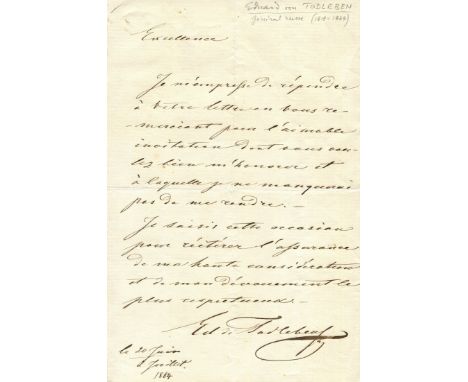 Eduard von TODLEBEN
général russe (1818-1884)
Excellence
Je m'empresse de répondre
à Votre lettre en vous re-
merciant pour l'aimable
invitation dont vous vou-
lez bien m'honorer et
à laquelle je ne manquerai
pas de me rendre. —
Je saisis cette occasion
pour réitérer l'assurance
de ma haute considération
et de mon dévouement le
plus respectueux. —
Ed de Todleben
le 20 Juin
Juillet.
1864